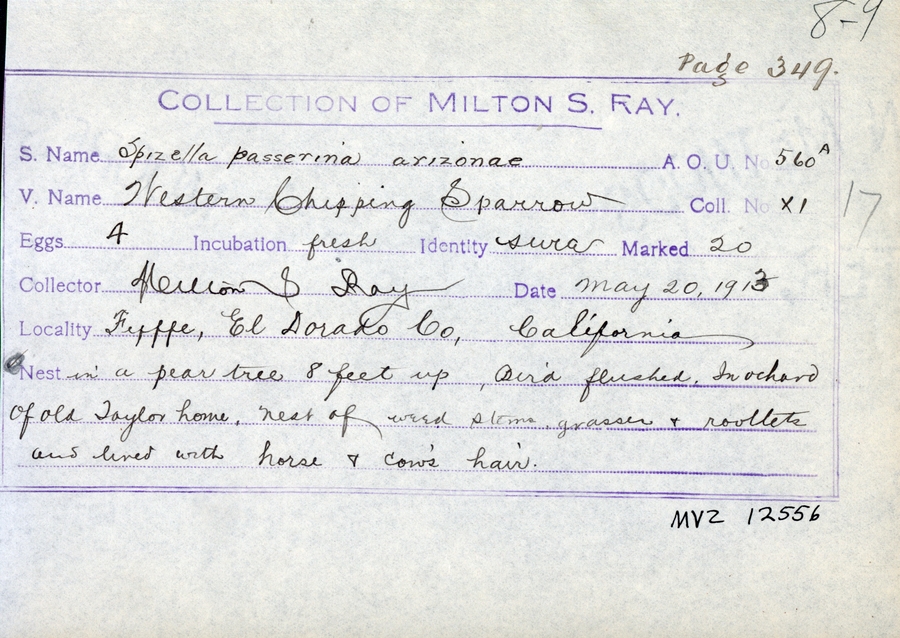 8-9
Page 349.
COLLECTION OF MILTON S. RAY.
S. Name Spizella passerina arizonae A. O. U. No 560A
V. Name Western Chipping Sparrow Coll. No XI
17
Eggs 4 Incubation fresh Identity sura Marked 20
Collector Milton S Ray Date May 20, 1913
Locality Fyffe, El Dorado Co, California
Nest in a pear tree 8 feet up, Bird flushed. In orchard
of old Taylor home. Nest of weed stems, grasses & rootlets
and lined with horse & cow's hair.
MVZ 12556